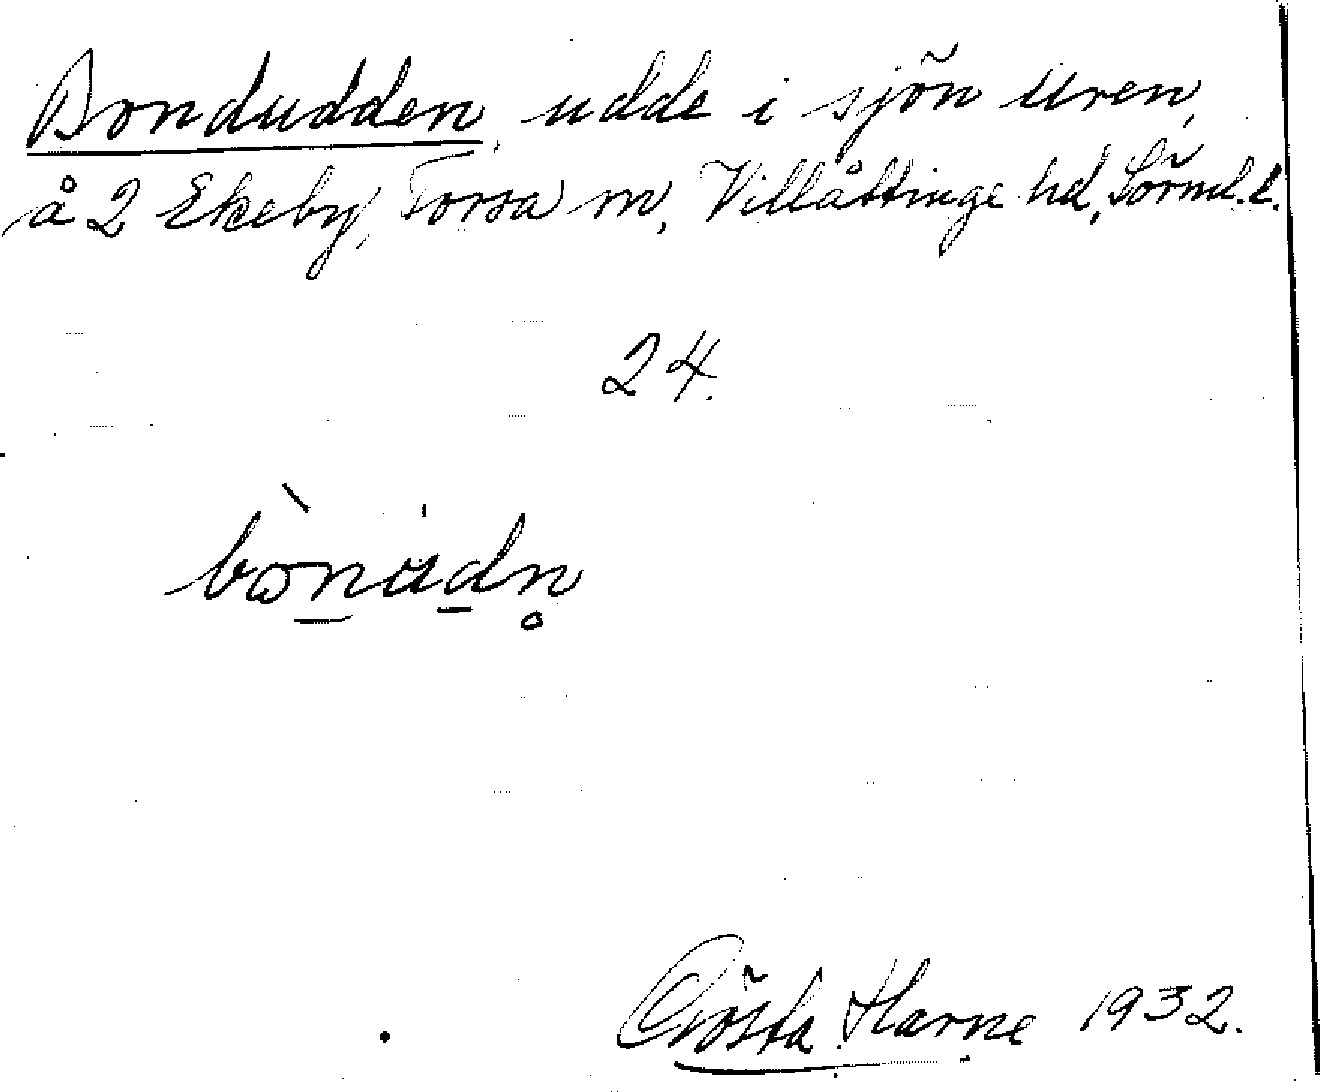 Bondudden, udde i sjön Uren,
å 2 Ekeby, Torsa sn, Villåttinge hd, Sörml. l.
24.
bònu̇dn̥
Gösta Harne 1932.